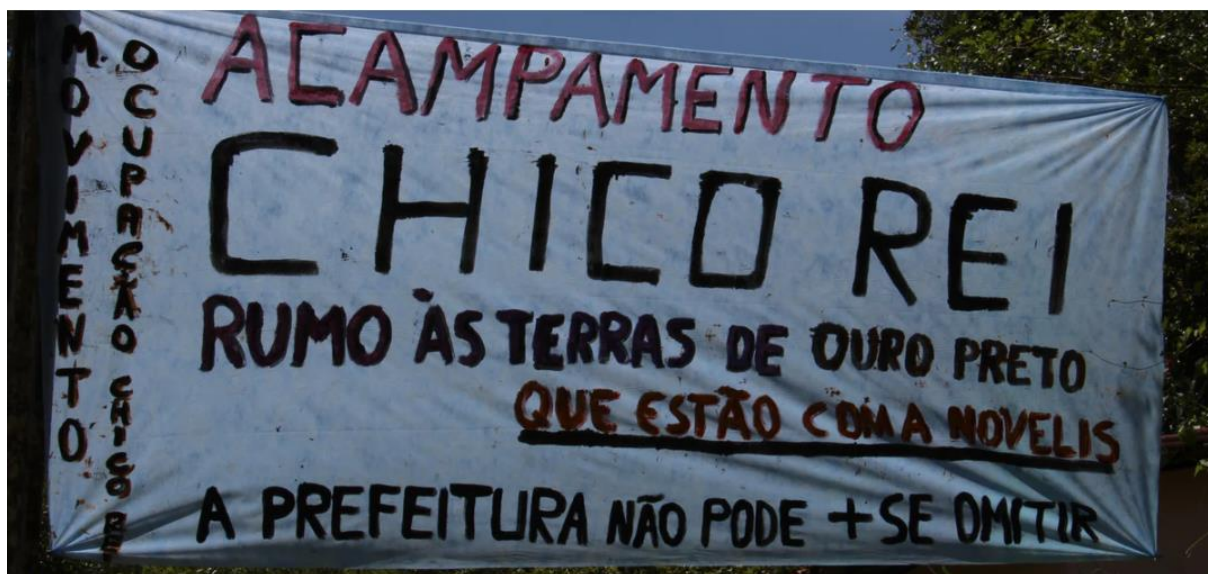 M. MOVIMENTO
OCUPAÇÃO CHICO REI
ACAMPAMENTO
CHICO REI
RUMO ÀS TERRAS DE OURO PRETO
QUE ESTÃO COM A NOVELIS
A PREFEITURA NÃO PODE + SE OMITIR